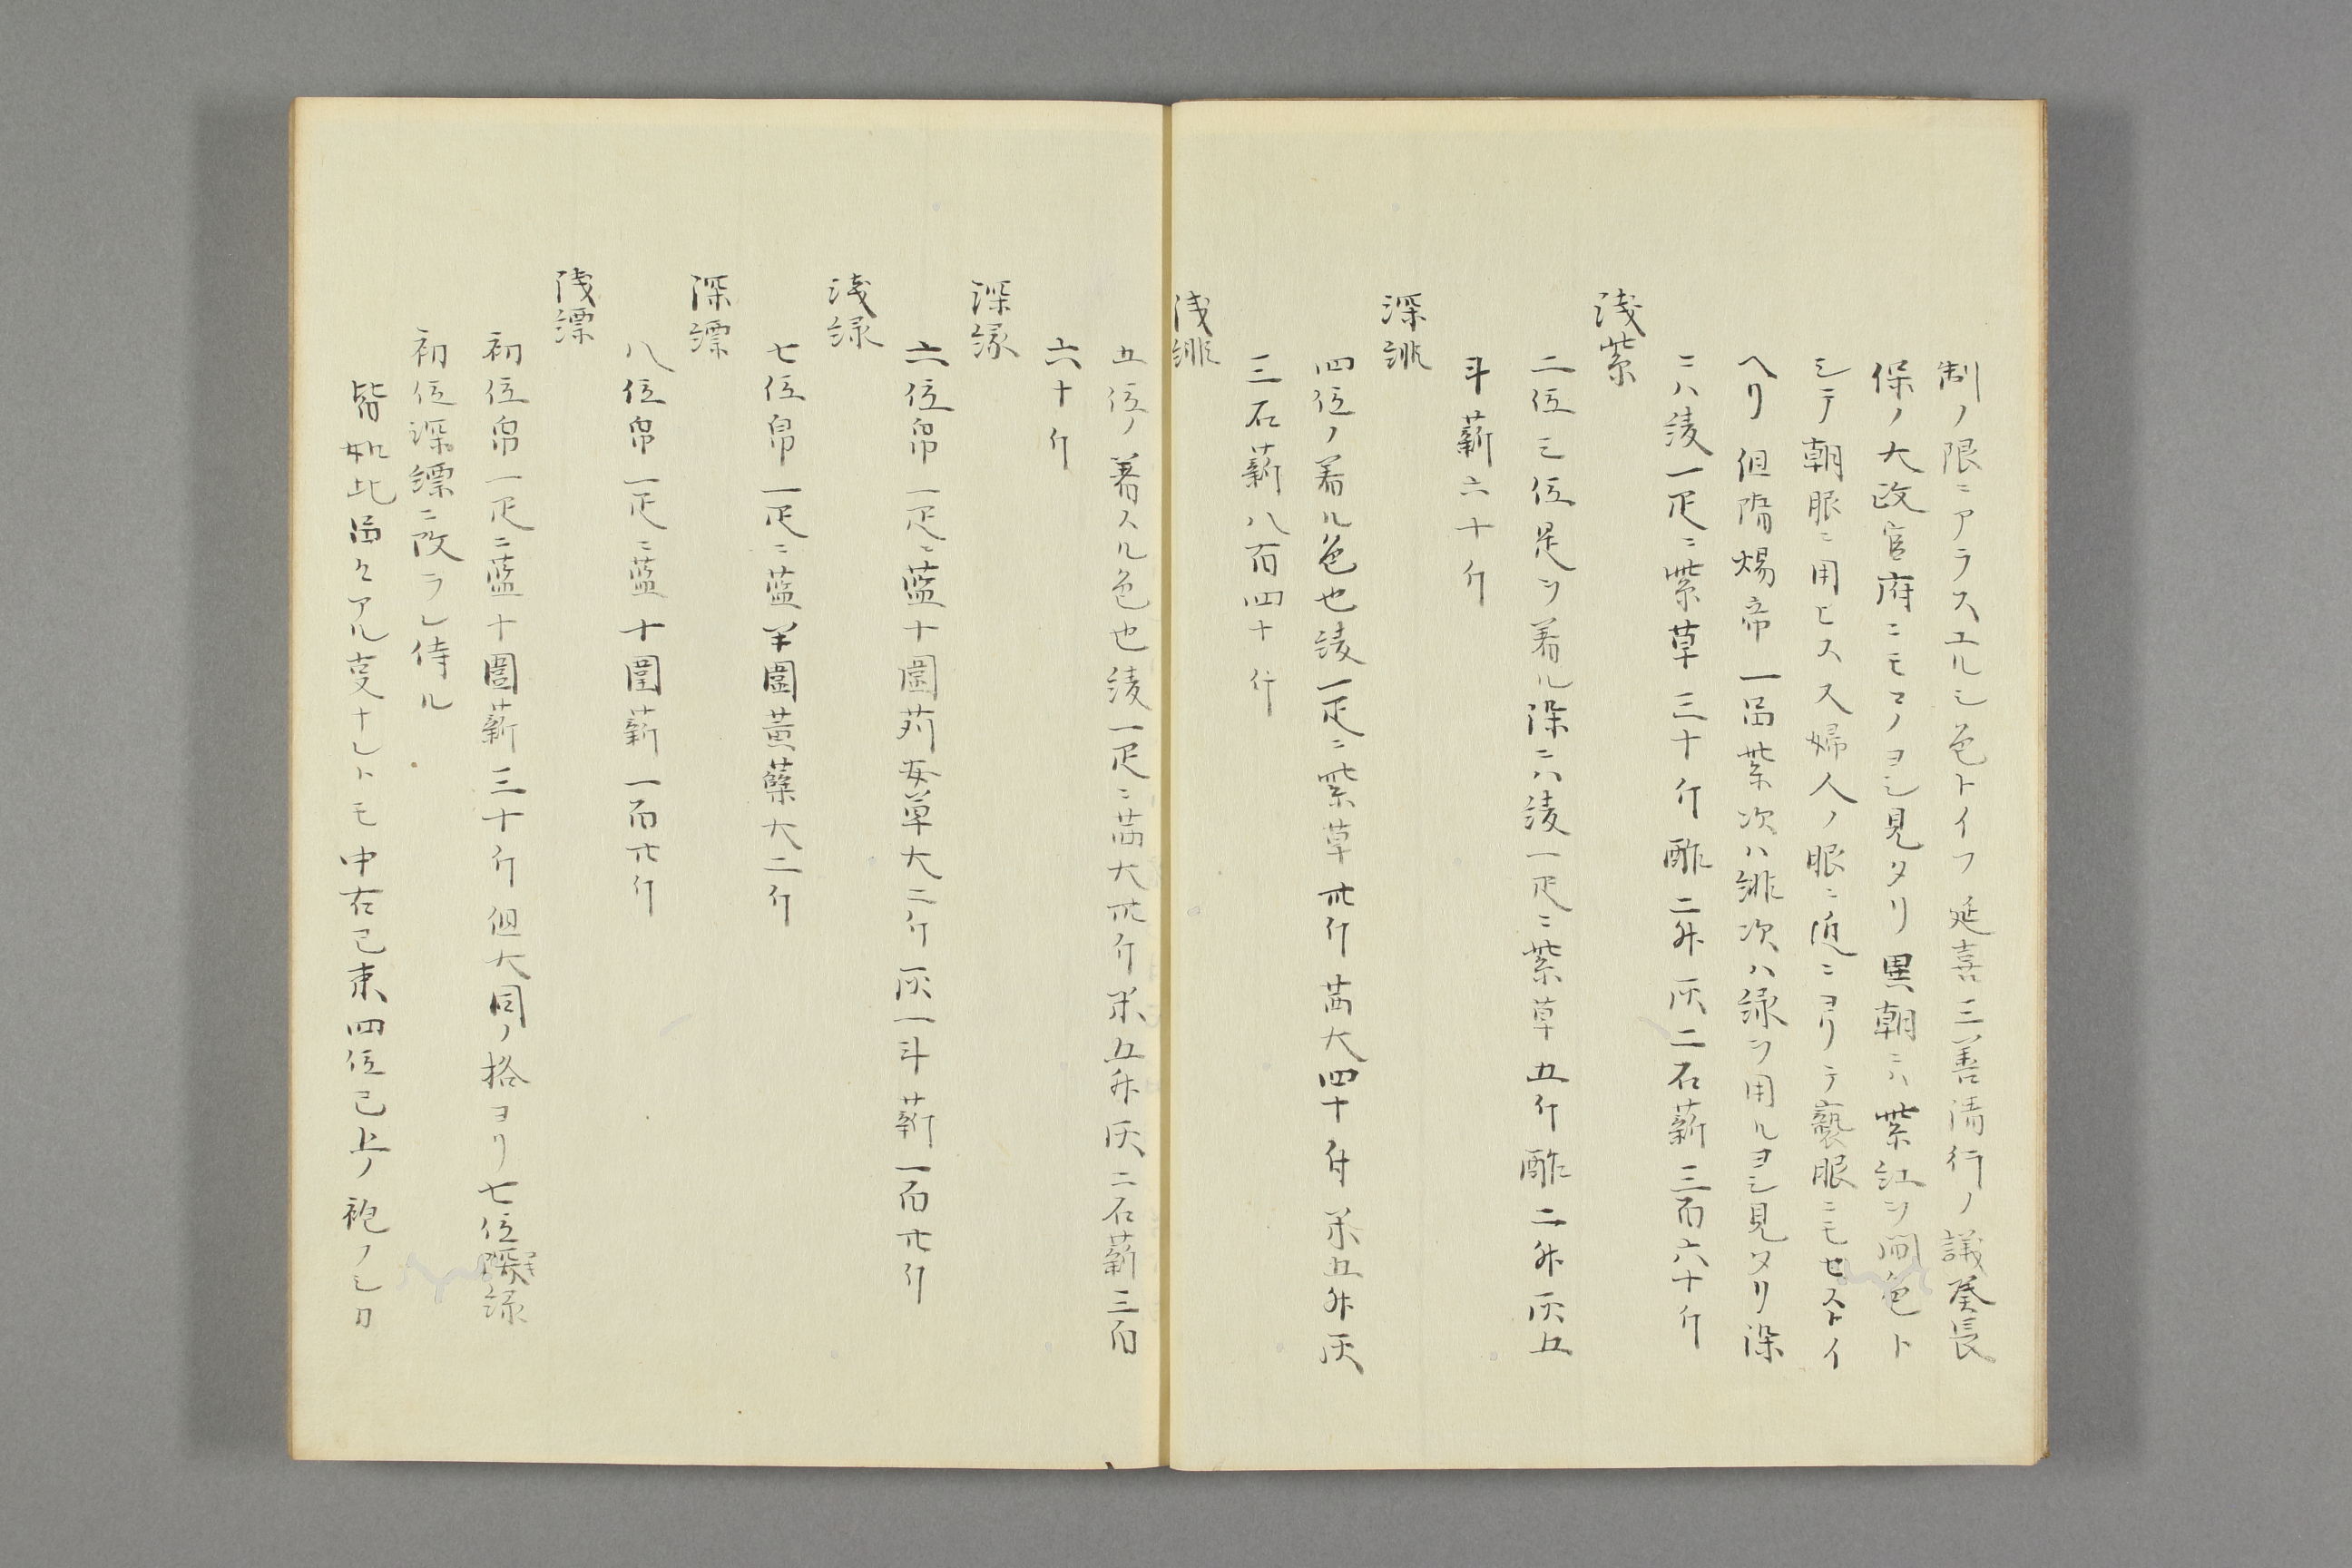 制ノ限ニアラスユルシ色トイフ延喜三善清行ノ議癸長
保ノ大政官府ニモコノヨシ見タリ異朝ニハ紫紅ヲ間色ト
シテ朝服ニ用ヒス又婦人ノ服ニ近ニヨリテ褻服ニモセストイ
ヘリ但隋煬帝一品紫次ハ緋次ハ緑ヲ用ルヨシ見タリ深
ニハ綾一疋ニ紫草三十斤酢二升灰二石薪三百六十斤
浅紫
二位三位是ヲ着ル深ニハ綾一疋ニ紫草五斤酢二升灰五
斗薪六十斤
深緋
四位ノ着ル色也綾一疋ニ紫草卅斤茜大四十斤米五升灰
三石薪八百四十斤
浅緋
五位ノ着スル色也綾一疋ニ茜大卅斤米五升灰二石薪三百
六十斤
深緑
六位帛一疋ニ藍十囲苅安草大二斤灰一斗薪一百卅斤
浅緑
七位帛一疋ニ藍半囲黄蘗大二斤
深縹
八位帛一疋ニ藍十囲薪一百卅斤
浅縹
初位帛一疋ニ藍十囲薪三十斤但大同ノ格ヨリ七位モ深緑
初位深縹ニ改ラレ侍ル
皆如此品々アル叓ナレトモ中右已来四位已上ノ袍ノシカ